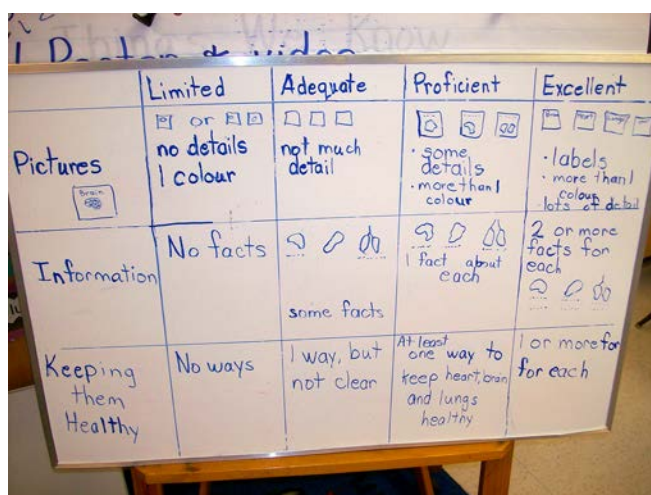 Things We Know
1 Poster & video
Limited
Adequate
Proficient
Excellent
Pictures
Brain
or
no details
1 colour
not much
detail
• some
details
• more than 1
colour
• labels
• more than 1
colour
• lots of detail
Information
No facts
some facts
1 fact about
each
2 or more
facts for
each
Keeping
them
Healthy
No ways
1 way, but
not clear
At least
one way to
keep heart, brain
and lungs
healthy
1 or more for
for each